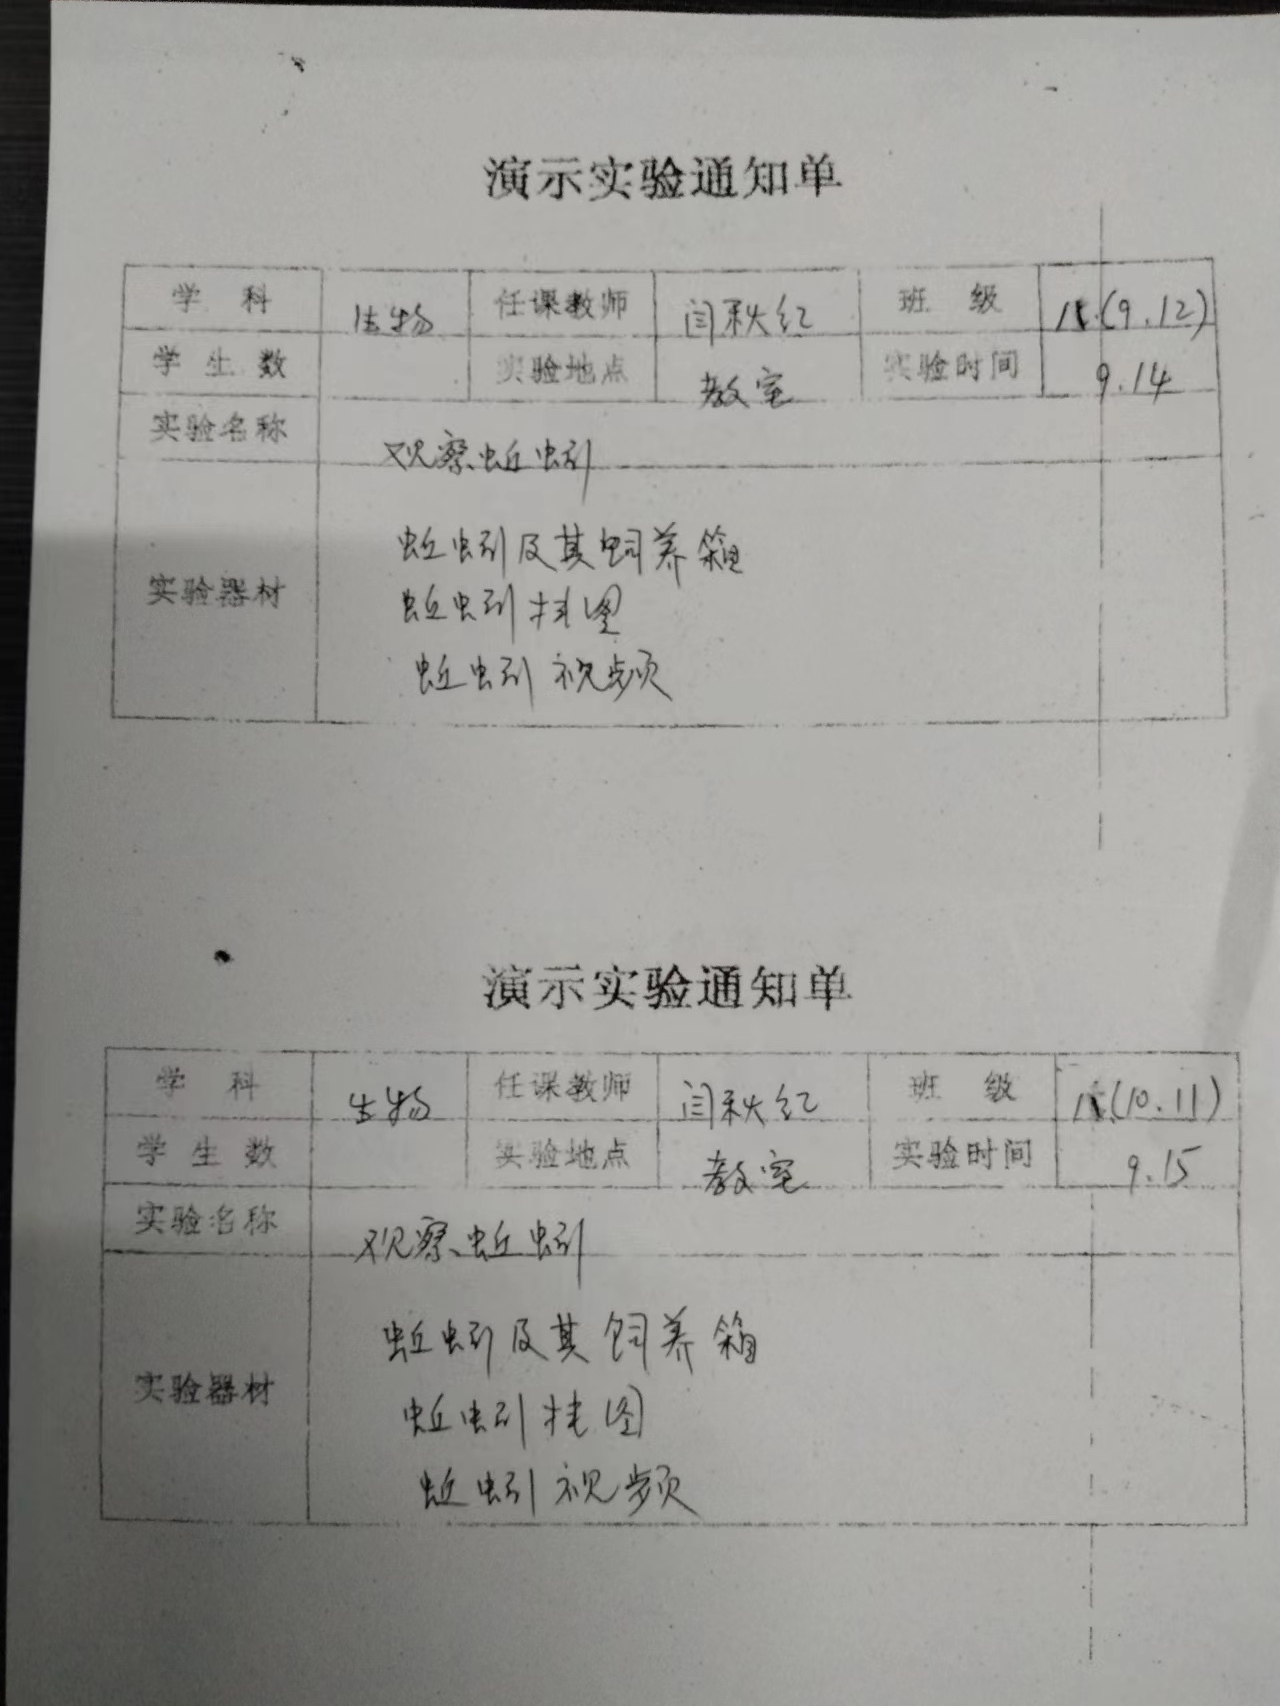 演示实验通知单
学 科 生物 任课教师 闫秋红 班 级 (9.12)
学 生 数 实验地点 教室 实验时间 9.14
实验名称 观察蚯蚓
实验器材
蚯蚓及其饲养箱
蚯蚓挂图
蚯蚓视频
演示实验通知单
学 科 生物 任课教师 闫秋红 班 级 (10.11)
学 生 数 实验地点 教室 实验时间 9.15
实验名称 观察蚯蚓
实验器材
蚯蚓及其饲养箱
蚯蚓挂图
蚯蚓视频